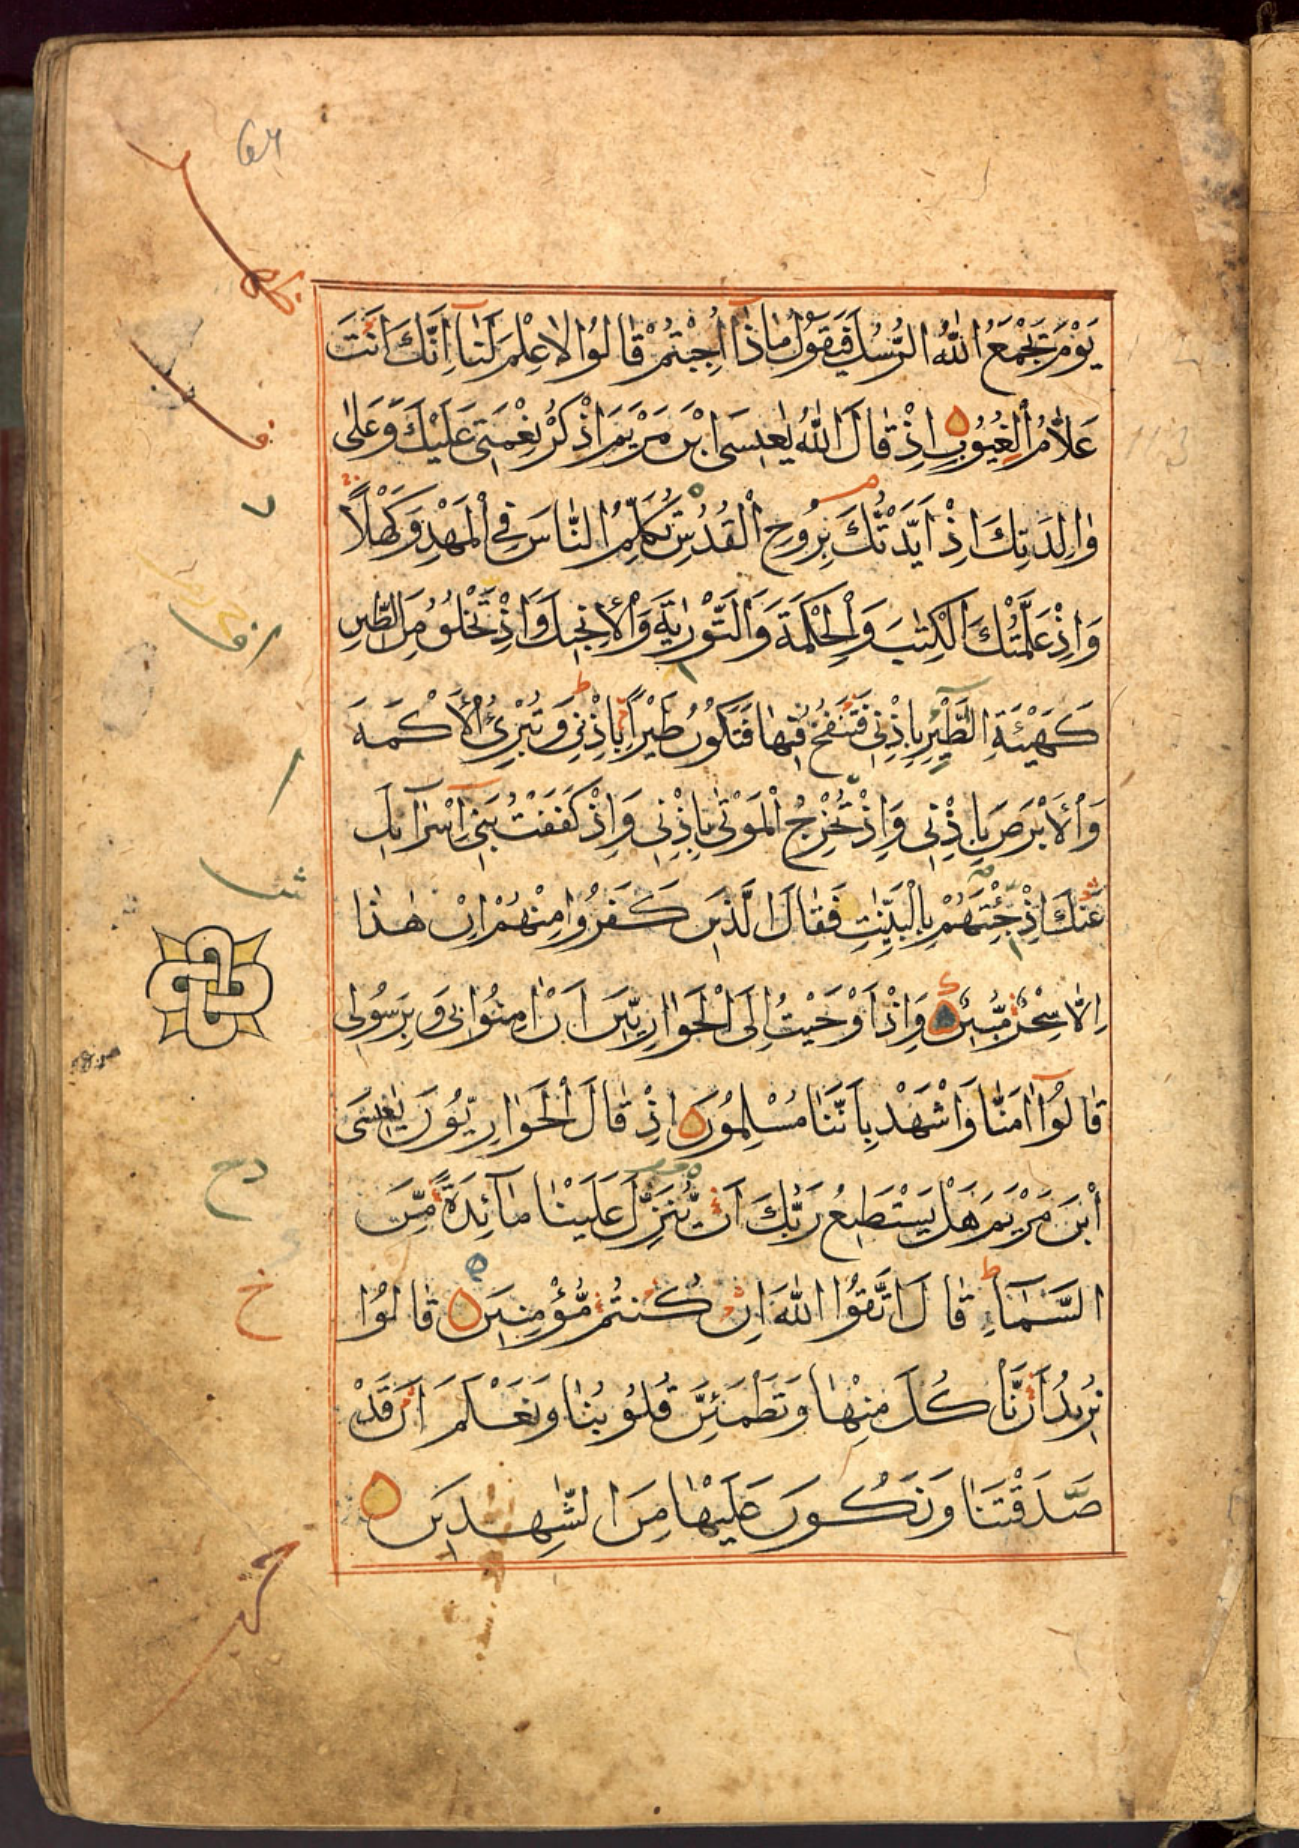 يَوْمَ يَجْمَعُ اللّٰهُ الرُّسُلَ فَيَقُوْلُ مَاذَآ اُجِبْتُمْ قَالُوْا لَا عِلْمَ لَنَا اِنَّكَ اَنْتَ
عَلَّامُ الْغُيُوْبِ اِذْ قَالَ اللّٰهُ يٰعِيْسَى ابْنَ مَرْيَمَ اذْكُرْ نِعْمَتِيْ عَلَيْكَ وَعَلٰى
وَالِدَتِكَ اِذْ اَيَّدْتُّكَ بِرُوْحِ الْقُدُسِ تُكَلِّمُ النَّاسَ فِي الْمَهْدِ وَكَهْلًا
وَاِذْ عَلَّمْتُكَ الْكِتٰبَ وَالْحِكْمَةَ وَالتَّوْرٰيةَ وَالْاِنْجِيْلَ وَاِذْ تَخْلُقُ مِنَ الطِّيْنِ
كَهَيْئَةِ الطَّيْرِ بِاِذْنِيْ فَتَنْفُخُ فِيْهَا فَتَكُوْنُ طَيْرًا بِاِذْنِيْ وَتُبْرِئُ الْاَكْمَهَ
وَالْاَبْرَصَ بِاِذْنِيْ وَاِذْ تُخْرِجُ الْمَوْتٰى بِاِذْنِيْ وَاِذْ كَفَفْتُ بَنِيْٓ اِسْرَآئِيْلَ
عَنْكَ اِذْ جِئْتَهُمْ بِالْبَيِّنٰتِ فَقَالَ الَّذِيْنَ كَفَرُوْا مِنْهُمْ اِنْ هٰذَا
اِلَّا سِحْرٌ مُّبِيْنٌ وَاِذْ اَوْحَيْتُ اِلَى الْحَوَارِيّٖنَ اَنْ اٰمِنُوْا بِيْ وَبِرَسُوْلِيْ
قَالُوْٓا اٰمَنَّا وَاشْهَدْ بِاَنَّنَا مُسْلِمُوْنَ اِذْ قَالَ الْحَوَارِيُّوْنَ يٰعِيْسَى
ابْنَ مَرْيَمَ هَلْ يَسْتَطِيْعُ رَبُّكَ اَنْ يُّنَزِّلَ عَلَيْنَا مَآئِدَةً مِّنَ
السَّمَآءِ قَالَ اتَّقُوا اللّٰهَ اِنْ كُنْتُمْ مُّؤْمِنِيْنَ قَالُوْا
نُرِيْدُ اَنْ نَّأْكُلَ مِنْهَا وَتَطْمَئِنَّ قُلُوْبُنَا وَنَعْلَمَ اَنْ قَدْ
صَدَقْتَنَا وَنَكُوْنَ عَلَيْهَا مِنَ الشّٰهِدِيْنَ